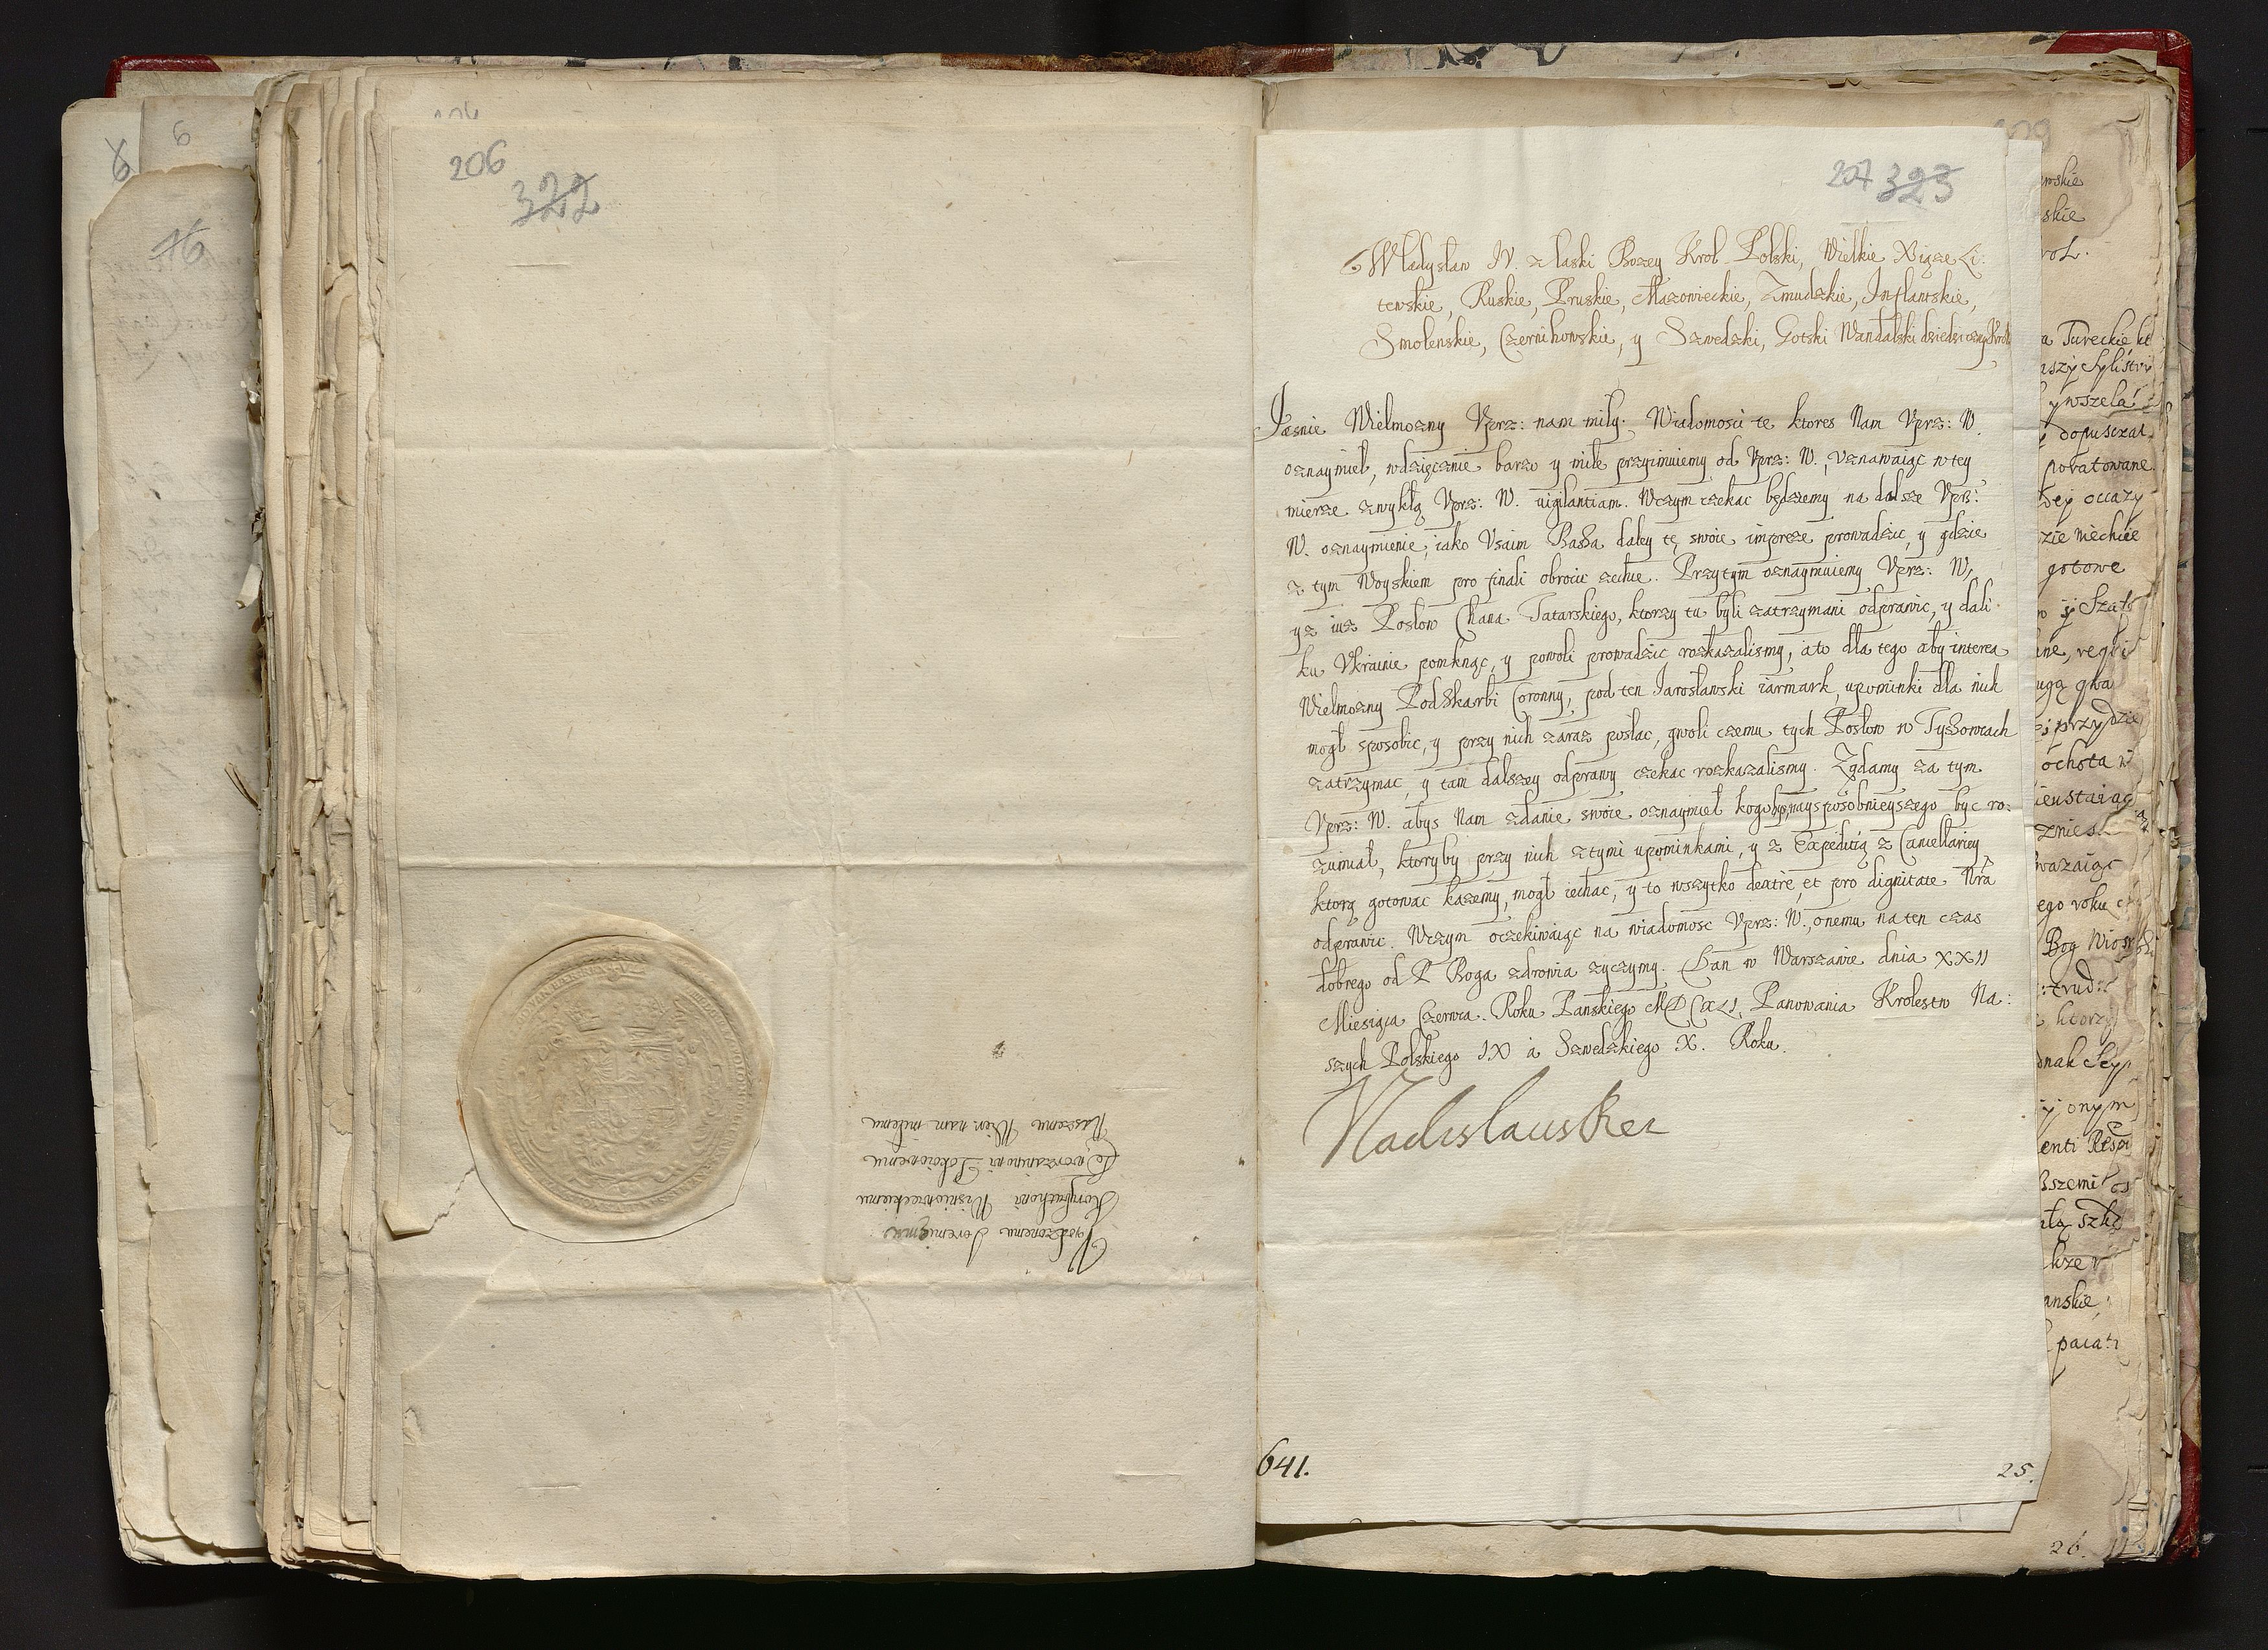 206
322
Urodzonemu Jeremiemu
Korybuthowi Wisniowieckiemu
Naszemu Wier. nam milemu
16
6
207 323
Władysław IV. z łaski Bozey Krol Polski, Wielkie Xiąze Li:
tewskie, Ruskie, Pruskie, Mazowieckie, Zmudzkie, Inflantskie,
Smolenskie, Czernihowskie, y Szwedzki, Gotski Wandalski dziedziczny Krol
Jasnie Wielmozny Vprz: nam miły. Wiadomosci te ktores Nam Vprz: W.
oznaymieł, wdzięcznie barzo y mile przyimuiemy od Vprz: W., Vznawaiąc w tey
mierze zwykłą Vprz: W. uigilantiam. Wczym czekac będziemy na dalsze Vprz:
W. oznaymienie, iako Vsaim Bassa daley tę swoie impreze prowadzic, y gdzie
z tym Woyskiem pro finali obrocic zechce. Przytym oznaymuiemy Vprz: W,
yz iuz Posłow Chana Tatarskiego, ktorzy tu byli zatrzymani odprawic, y dali
ku Vkrainie pomknąc, y powoli prowadzic roskazalismy, a to dla tego aby interea
Wielmozny Podskarbi Coronny, pod ten Iarosławski iarmark, upominki dla nich
mogł sposobic, y przy nich zaraz posłac, gwoli czemu tych Posłow w Tyszowcach
zatrzymac, y tam dalszey odprawy czekac roskazalismy. Ządamy za tym
Vprz: W. abys Nam zdanie swoie oznaymieł kogobys naysposobnieyszego byc ro:
zumiał, ktoryby przy nich z tymi upominkami, y z Expeditią z Cancellariey
ktorą gotowac kazemy, mogł iechac, y to wszytko dextre et pro dignitate Nra
odprawic. Wczym oczekiwaiąc na wiadomosc Vprz: W., onemu na ten czas
dobrego od P. Boga zdrowia zyczymy. Dan w Warszawie dnia XXII
Miesiąca Czerwca. Roku Panskiego MDCXLI, Panowania Krolestw Na:
szych Polskiego IX a Szwedzkiego X. Roku.
Vladislaus Rex
641.
25.
26.